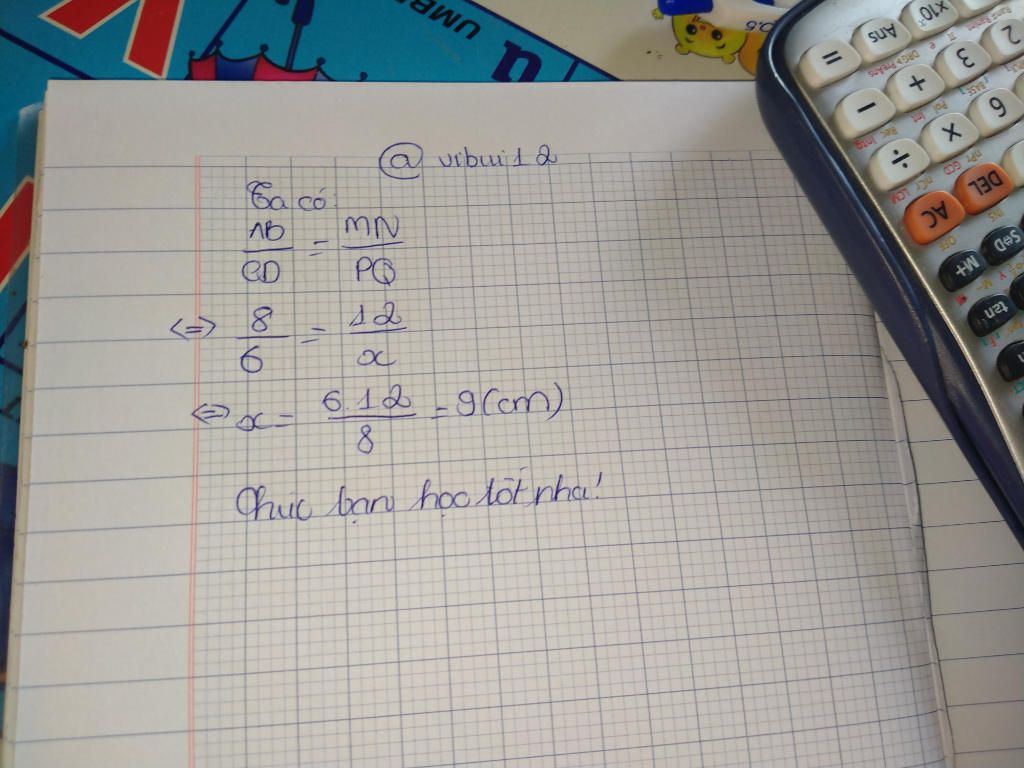 UMB
@ vibui12
Ta có:
AB/CD = MN/PQ
<=> 8/6 = 12/x
<=> x = 6.12/8 = 9(cm)
Chúc bạn học tốt nha!
= Ans ×10ˣ
− + 3 2
÷ × 6
AC DEL
M+ S⇔D
tan